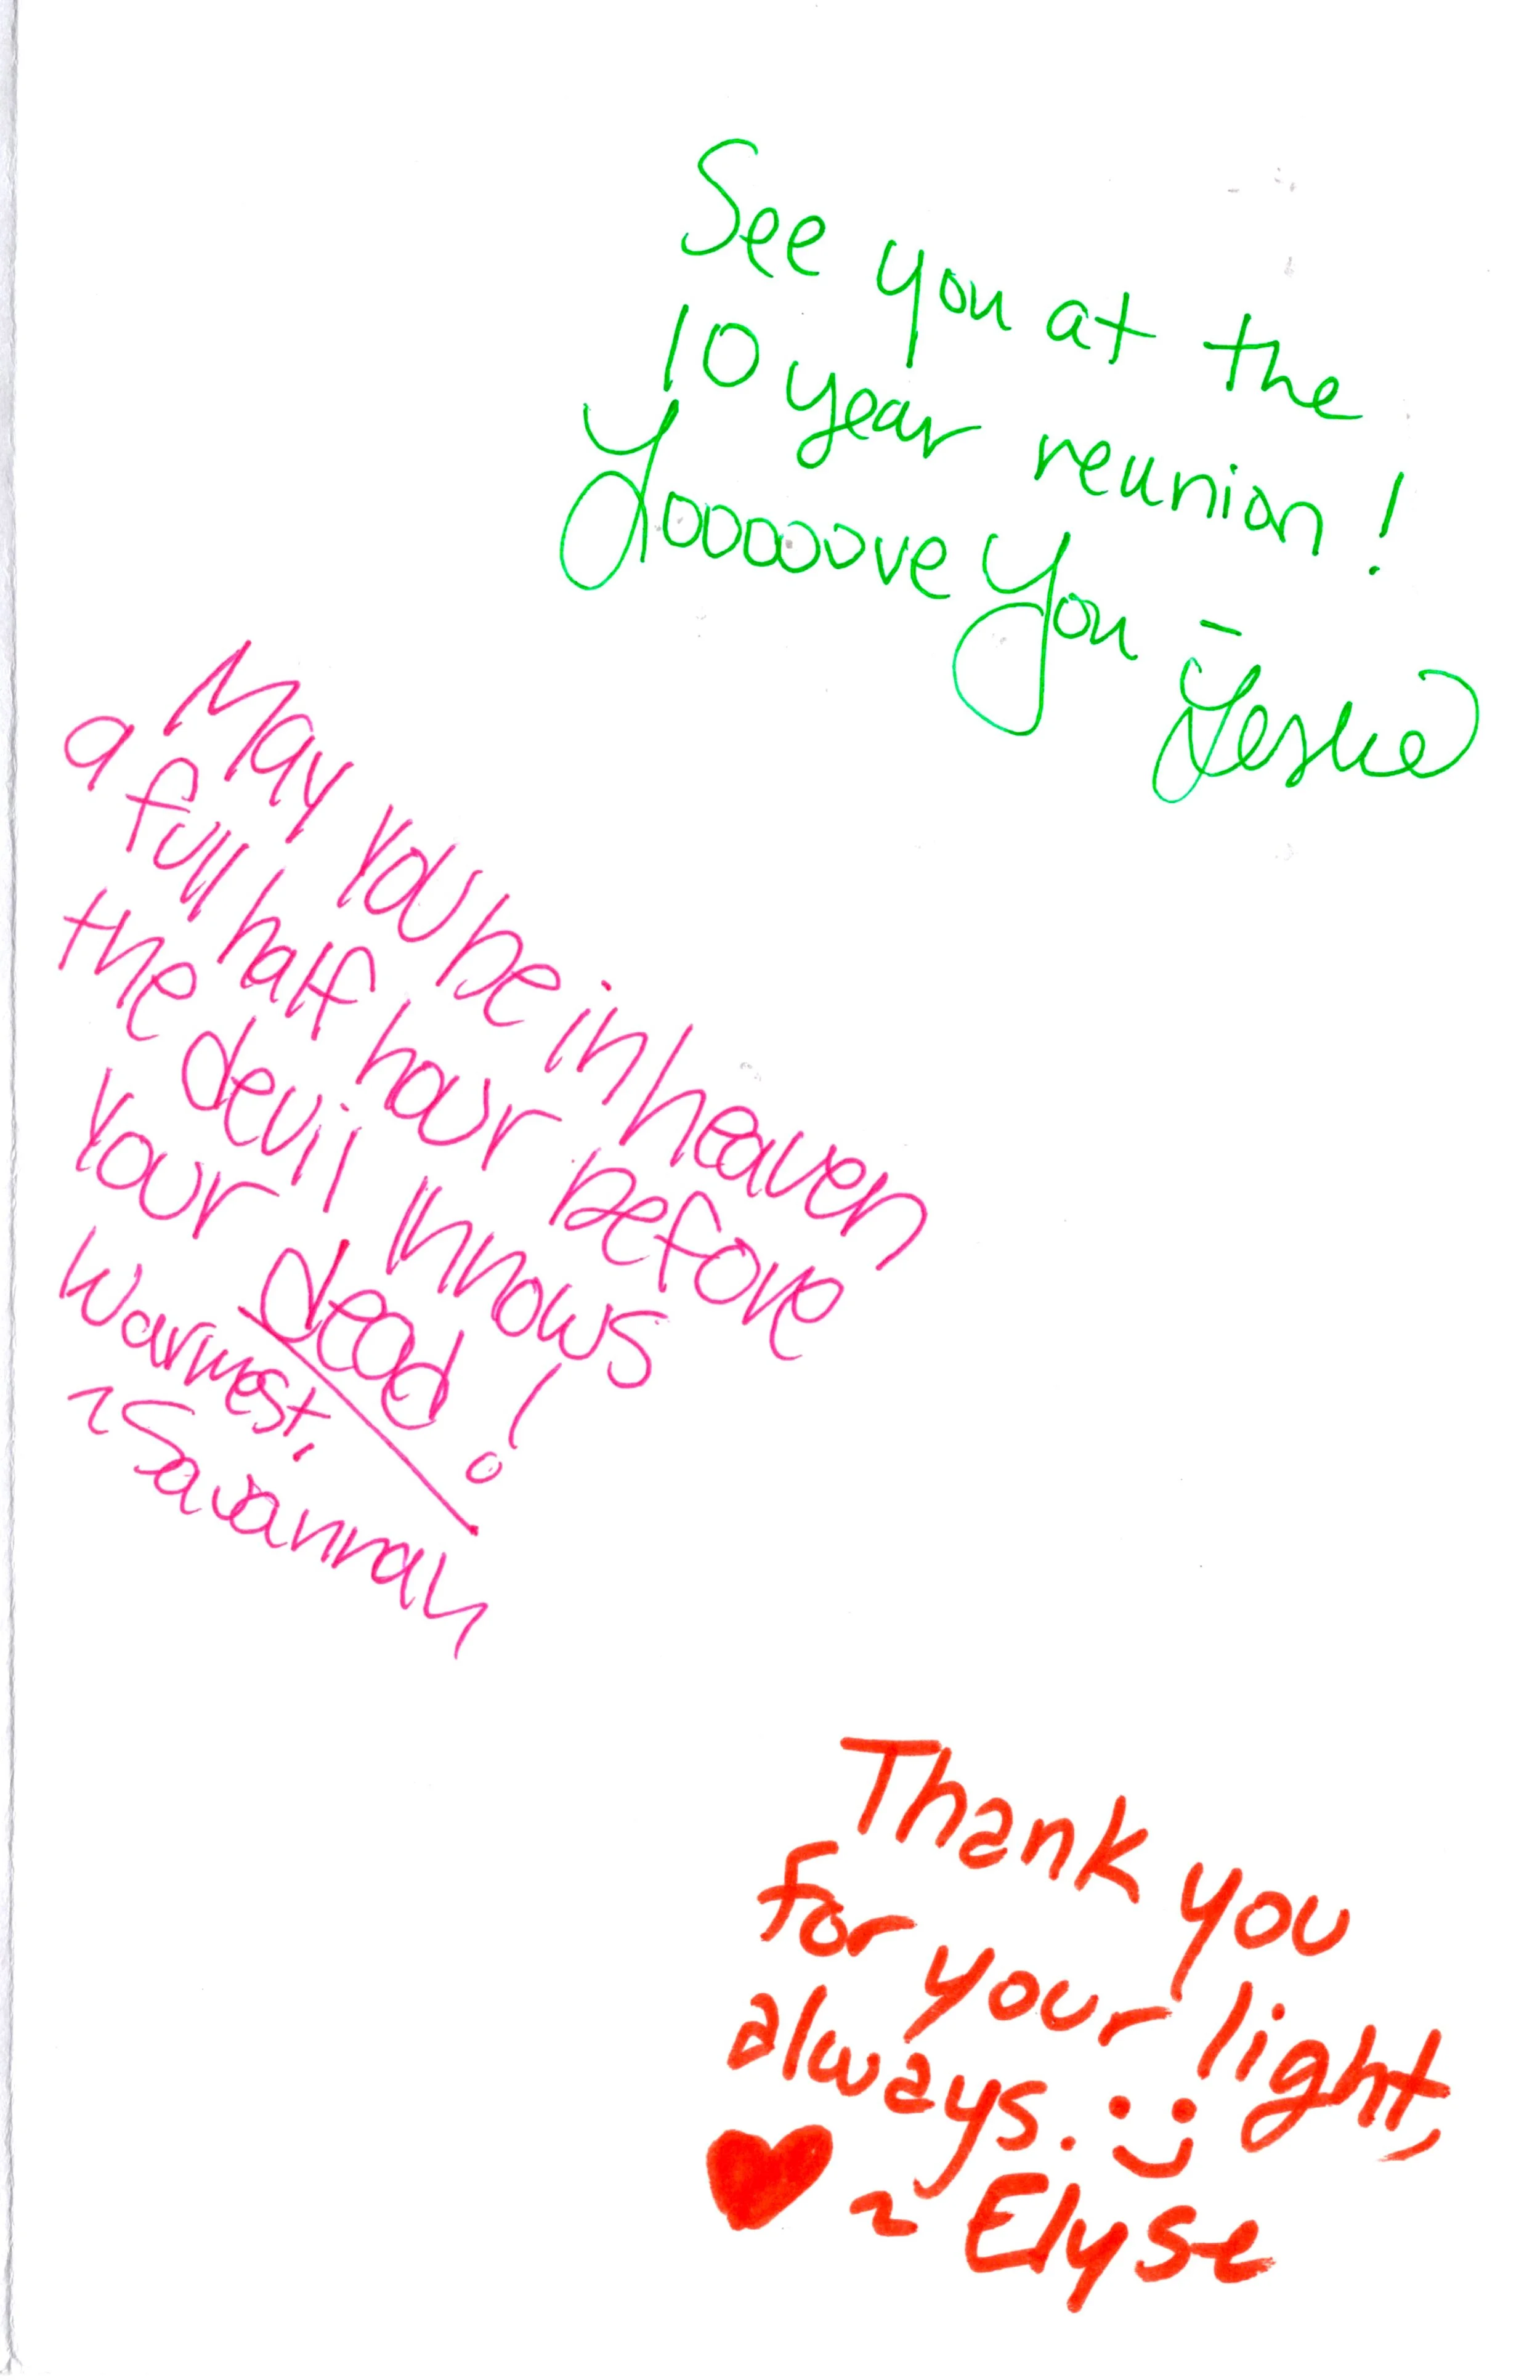 See you at the
10 year reunion!
Looooove You -
Leslie
May you be in heaven
a full half hour before
the devil knows
your dead!
Warmest,
~Savannah
Thank you
for your light,
always. :)
♥ ~ Elyse